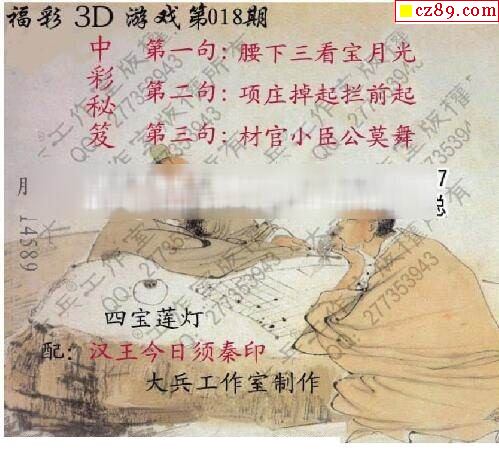 cz89.com
福彩 3D 游戏第018期
中彩秘笈
第一句：腰下三看宝月光
第二句：项庄掉起拦前起
第三句：材官小臣公莫舞
月
7
总
14589
四宝莲灯
配：汉王今日须秦印
大兵工作室制作
大兵工作室版權所有
QQ：277353943